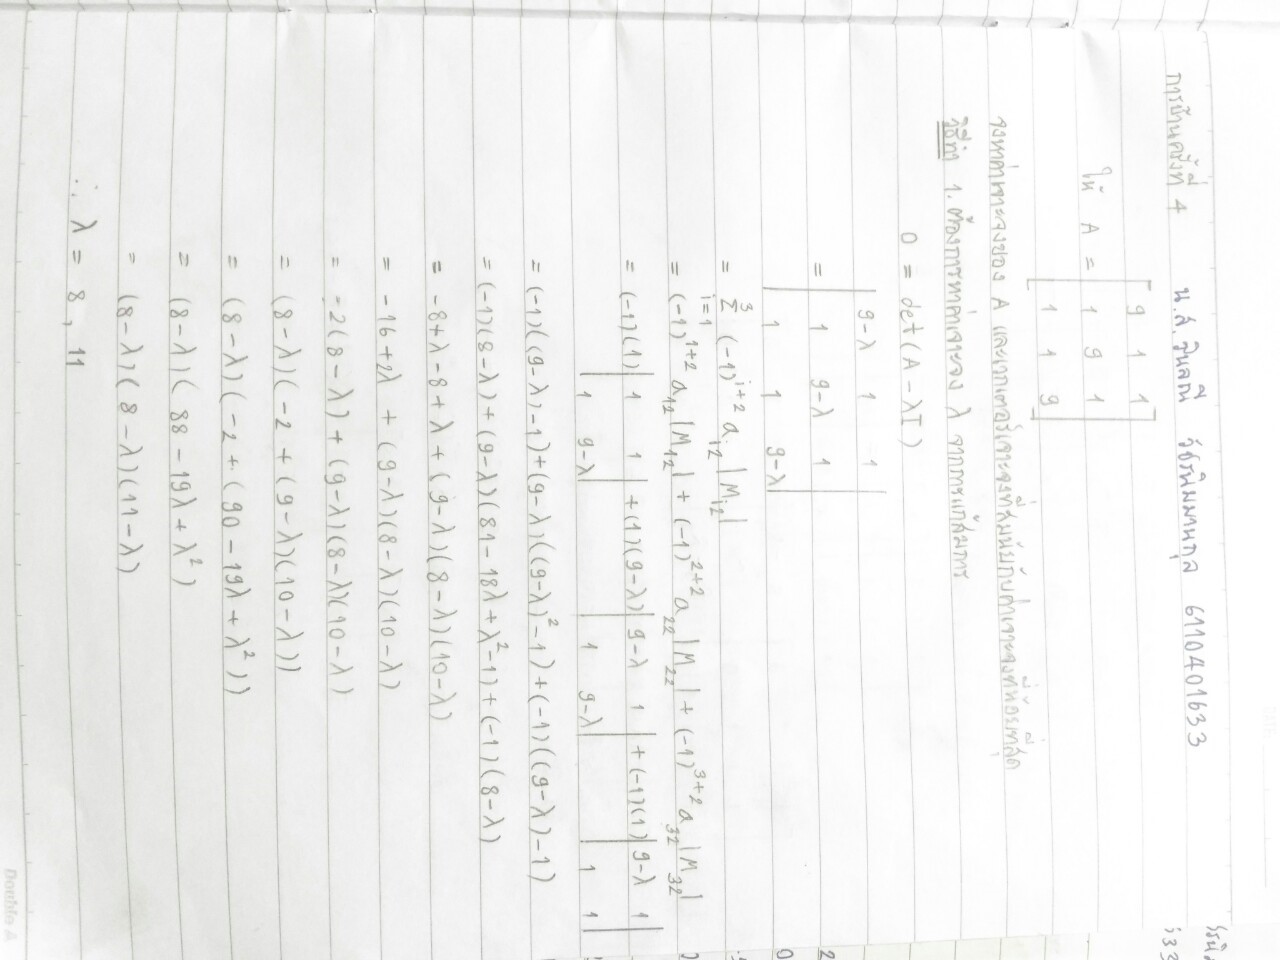 DATE
การบ้านครั้งที่ 4 น.ส. วัชรนิมมานกุล 6110401633
ให้ A = [ 9 1 1
1 9 1
1 1 9 ]
จงหาค่าเจาะจงของ A และเวกเตอร์เจาะจงที่สมนัยกับค่าเจาะจงที่น้อยที่สุด
วิธีทำ 1. ต้องการหาค่าเจาะจง λ จากการแก้สมการ
0 = det(A - λI)
= | 9-λ 1 1
1 9-λ 1
1 1 9-λ |
= Σ_{i=1}^{3} (-1)^{i+2} a_{i2} |M_{i2}|
= (-1)^{1+2} a_{12} |M_{12}| + (-1)^{2+2} a_{22} |M_{22}| + (-1)^{3+2} a_{32} |M_{32}|
= (-1)(1) | 1 1 | + (1)(9-λ) | 9-λ 1 | + (-1)(1) | 9-λ 1 |
| 1 9-λ | | 1 9-λ | | 1 1 |
= (-1)((9-λ)-1)+(9-λ)((9-λ)²-1)+(-1)((9-λ)-1)
= (-1)(8-λ)+(9-λ)(81-18λ+λ²-1)+(-1)(8-λ)
= -8+λ-8+λ+(9-λ)(8-λ)(10-λ)
= -16+2λ + (9-λ)(8-λ)(10-λ)
= -2(8-λ)+(9-λ)(8-λ)(10-λ)
= (8-λ)(-2+(9-λ)(10-λ))
= (8-λ)(-2+(90-19λ+λ²))
= (8-λ)(88-19λ+λ²)
= (8-λ)(8-λ)(11-λ)
∴ λ = 8, 11
Double A